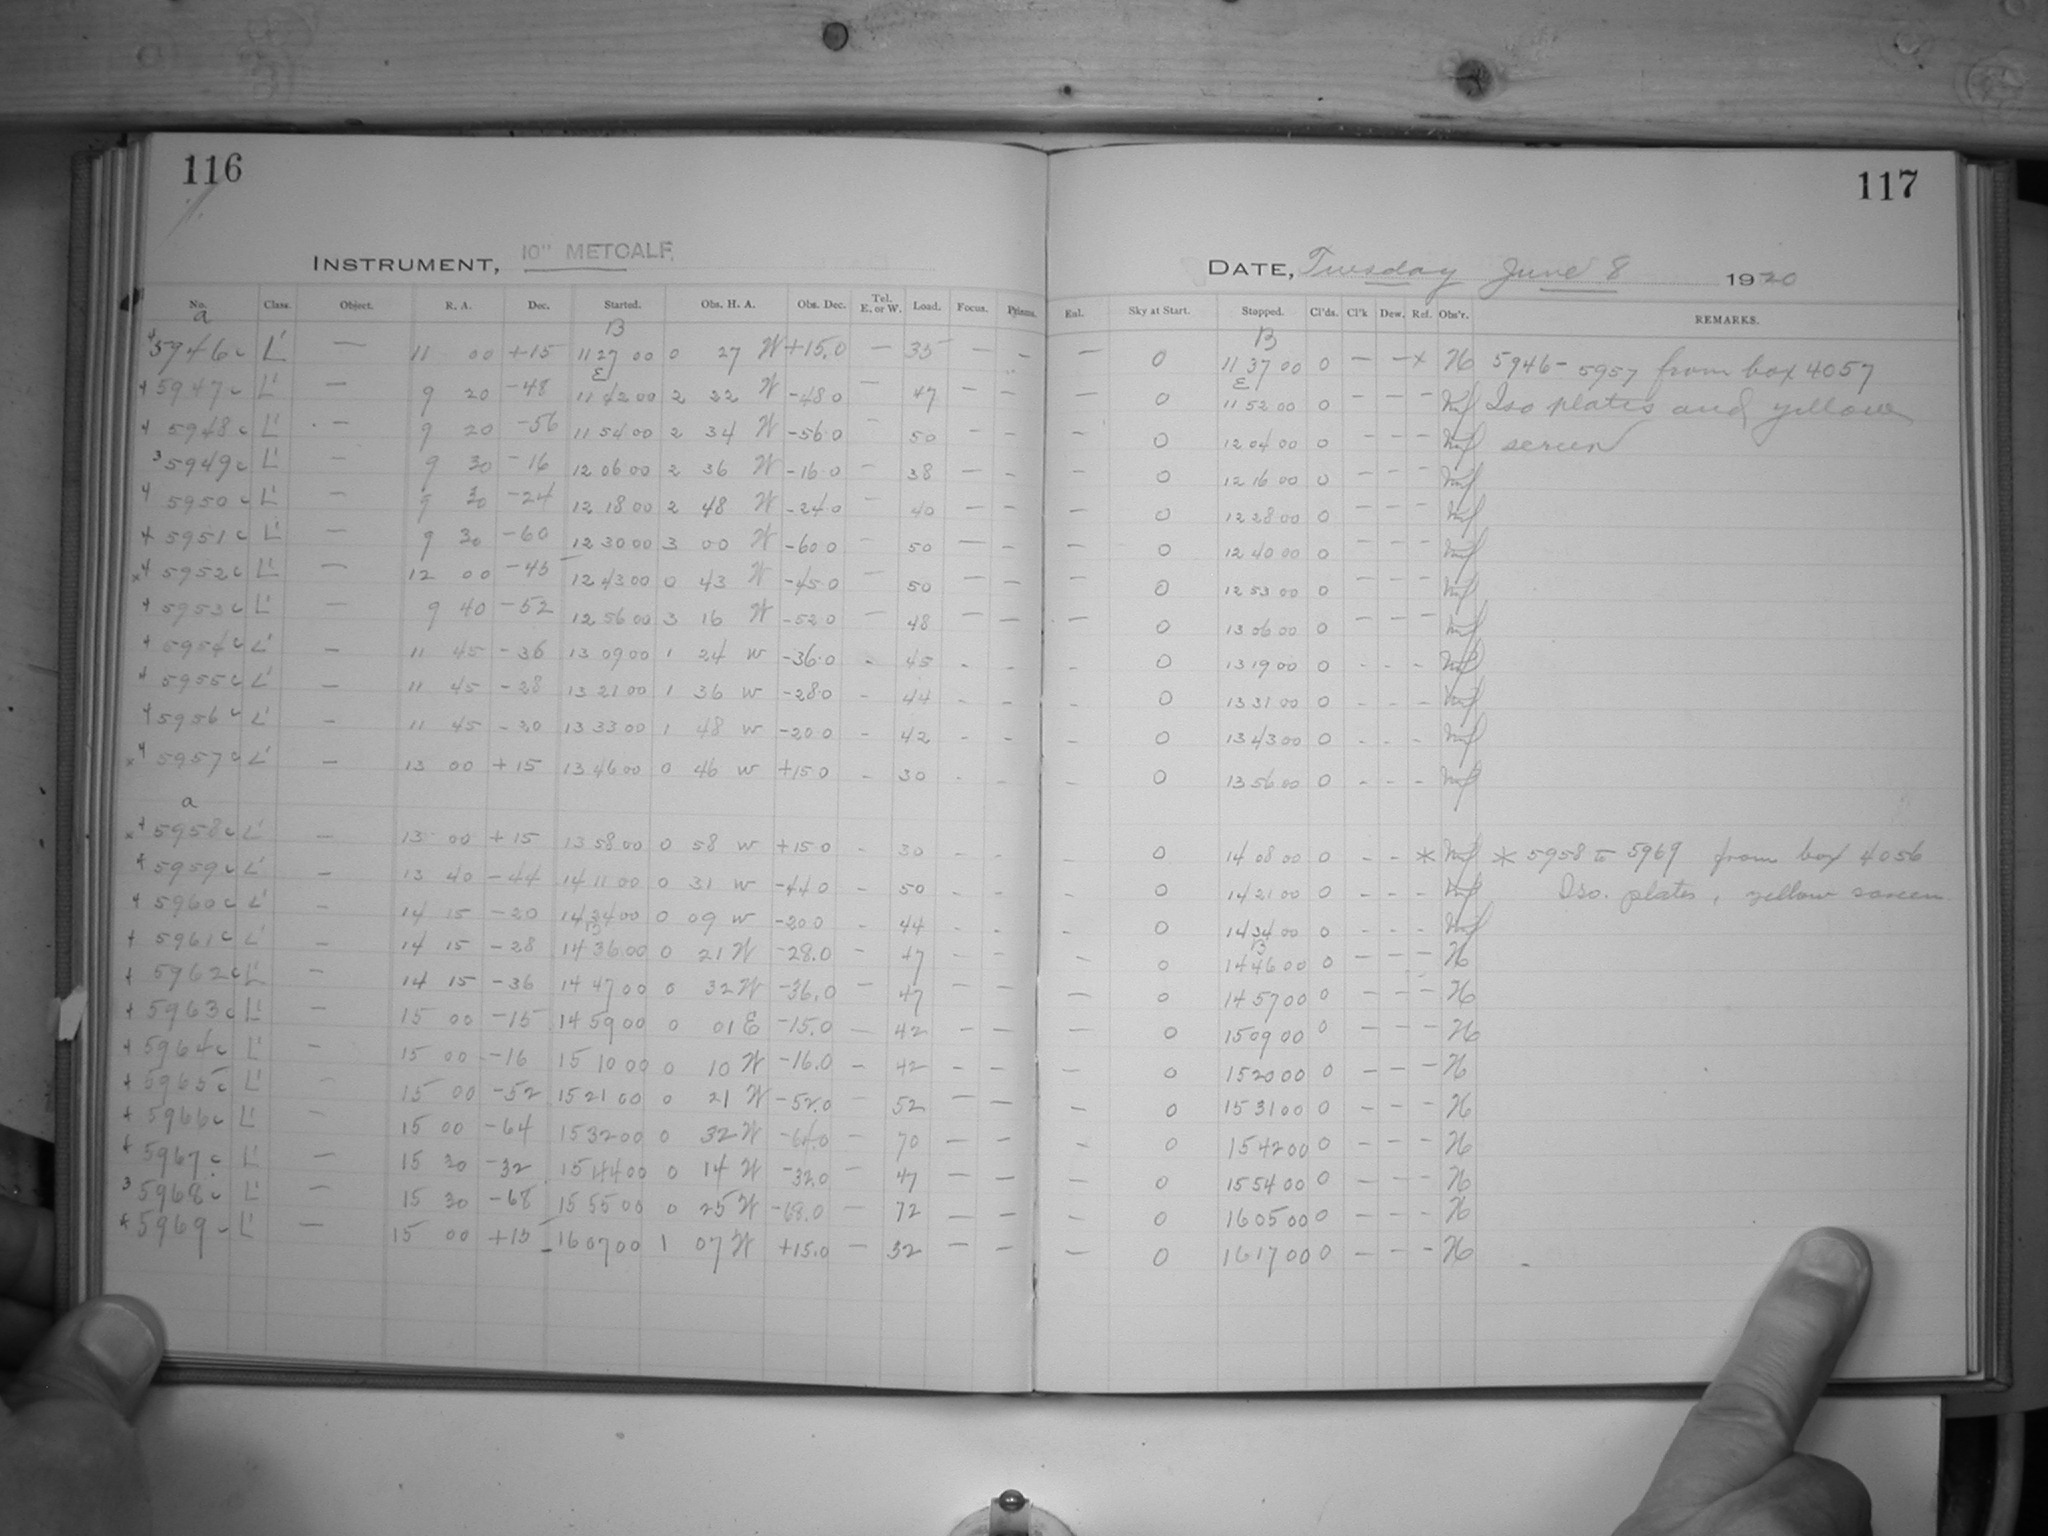 116
INSTRUMENT, 10" METCALF.
No. Class. Object. R. A. Dec. Started. Obs. H. A. Obs. Dec. Tel. E. or W. Load. Focus. Prisms.
a B
4 5946c L' — 11 00 +15 11 27 00 0 27 W +15.0 — 35 — —
E
4 5947c L' — 9 20 -48 11 42 00 2 22 W -48.0 — 47 — —
4 5948c L' — 9 20 -56 11 54 00 2 34 W -56.0 — 50 — —
3 5949c L' — 9 30 -16 12 06 00 2 36 W -16.0 — 38 — —
4 5950c L' — 9 30 -24 12 18 00 2 48 W -24.0 — 40 — —
4 5951c L' — 9 30 -60 12 30 00 3 00 W -60.0 — 50 — —
x 4 5952c L' — 12 00 -45 12 43 00 0 43 W -45.0 — 50 — —
4 5953c L' — 9 40 -52 12 56 00 3 16 W -52.0 — 48 — —
4 5954c L' — 11 45 -36 13 09 00 1 24 W -36.0 - 45 - -
4 5955c L' — 11 45 -28 13 21 00 1 36 W -28.0 - 44 - -
4 5956c L' — 11 45 -20 13 33 00 1 48 W -20.0 - 42 - -
x 4 5957c L' — 13 00 +15 13 46 00 0 46 W +15.0 - 30 - -
a
x 4 5958c L' — 13 00 +15 13 58 00 0 58 W +15.0 - 30 - -
4 5959c L' — 13 40 -44 14 11 00 0 31 W -44.0 - 50 - -
4 5960c L' — 14 15 -20 14 24 00 0 09 W -20.0 - 44 - -
B
4 5961c L' — 14 15 -28 14 36 00 0 21 W -28.0 - 47 - -
4 5962c L' — 14 15 -36 14 47 00 0 32 W -36.0 - 47 - -
4 5963c L' — 15 00 -15 14 59 00 0 01 E -15.0 — 42 — —
4 5964c L' — 15 00 -16 15 10 00 0 10 W -16.0 — 42 — —
4 5965c L' — 15 00 -52 15 21 00 0 21 W -52.0 — 52 — —
4 5966c L' — 15 00 -64 15 32 00 0 32 W -64.0 — 70 — —
4 5967c L' — 15 30 -32 15 44 00 0 14 W -32.0 — 47 — —
3 5968c L' — 15 30 -68 15 55 00 0 25 W -68.0 — 72 — —
4 5969c L' — 15 00 +15 16 07 00 1 07 W +15.0 — 32 — —
117
DATE, Tuesday June 8 1920
Enl. Sky at Start. Stopped. Cl'ds. Cl'k Dew. Ref. Obs'r. REMARKS.
B
— 0 11 37 00 0 — — x H 5946-5957 from box 4057
E
— 0 11 52 00 0 — — — Iso plates and yellow
— 0 12 04 00 0 — — — screen
0 12 16 00 0 — — —
— 0 12 28 00 0 — — —
— 0 12 40 00 0 — — —
— 0 12 53 00 0 — — —
— 0 13 06 00 0 — — —
- 0 13 19 00 0 - - -
- 0 13 31 00 0 - - -
- 0 13 43 00 0 - - -
- 0 13 56 00 0 - - -
- 0 14 08 00 0 - - * * 5958 to 5969 from box 4056
- 0 14 21 00 0 - - - Iso. plates, yellow screen
- 0 14 34 00 0 - - -
B
- 0 14 46 00 0 — — — H
— 0 14 57 00 0 — — — H
— 0 15 09 00 0 — — — H
— 0 15 20 00 0 — — — H
— 0 15 31 00 0 — — — H
- 0 15 42 00 0 — — — H
- 0 15 54 00 0 — — — H
- 0 16 05 00 0 — — — H
— 0 16 17 00 0 — — — H